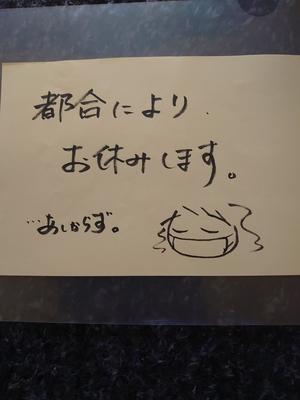 都合により
お休みします。
…あしからず。